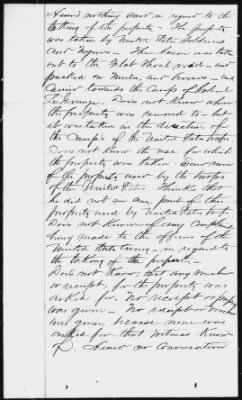 Heard nothing said in regard to the
taking of the property - The property
was taken by United States Soldiers
and Negroes - The Bacon was taken
out to the Flat Shoal road - and
packed on Mules, and horses - and
carried towards the Camps of Colonel
Does not know where
the property was removed to - but
it was taken in the direction of
the Camps of the United States troops,
Does not know the use for which
the property was taken. Saw none
of the property used by the troops
of the United States. Thinks that
he did not see any part of this
property used by United States troops.
Does not know of any complaint
being made to the officers of the
United States Army - in regard to
the taking of the property -
Does not know, that any voucher
or receipt, for the property was
asked for. No receipt or
was given - No receipt or voucher
was given, because none was
asked for that witness knows
of. Heard no Conversation